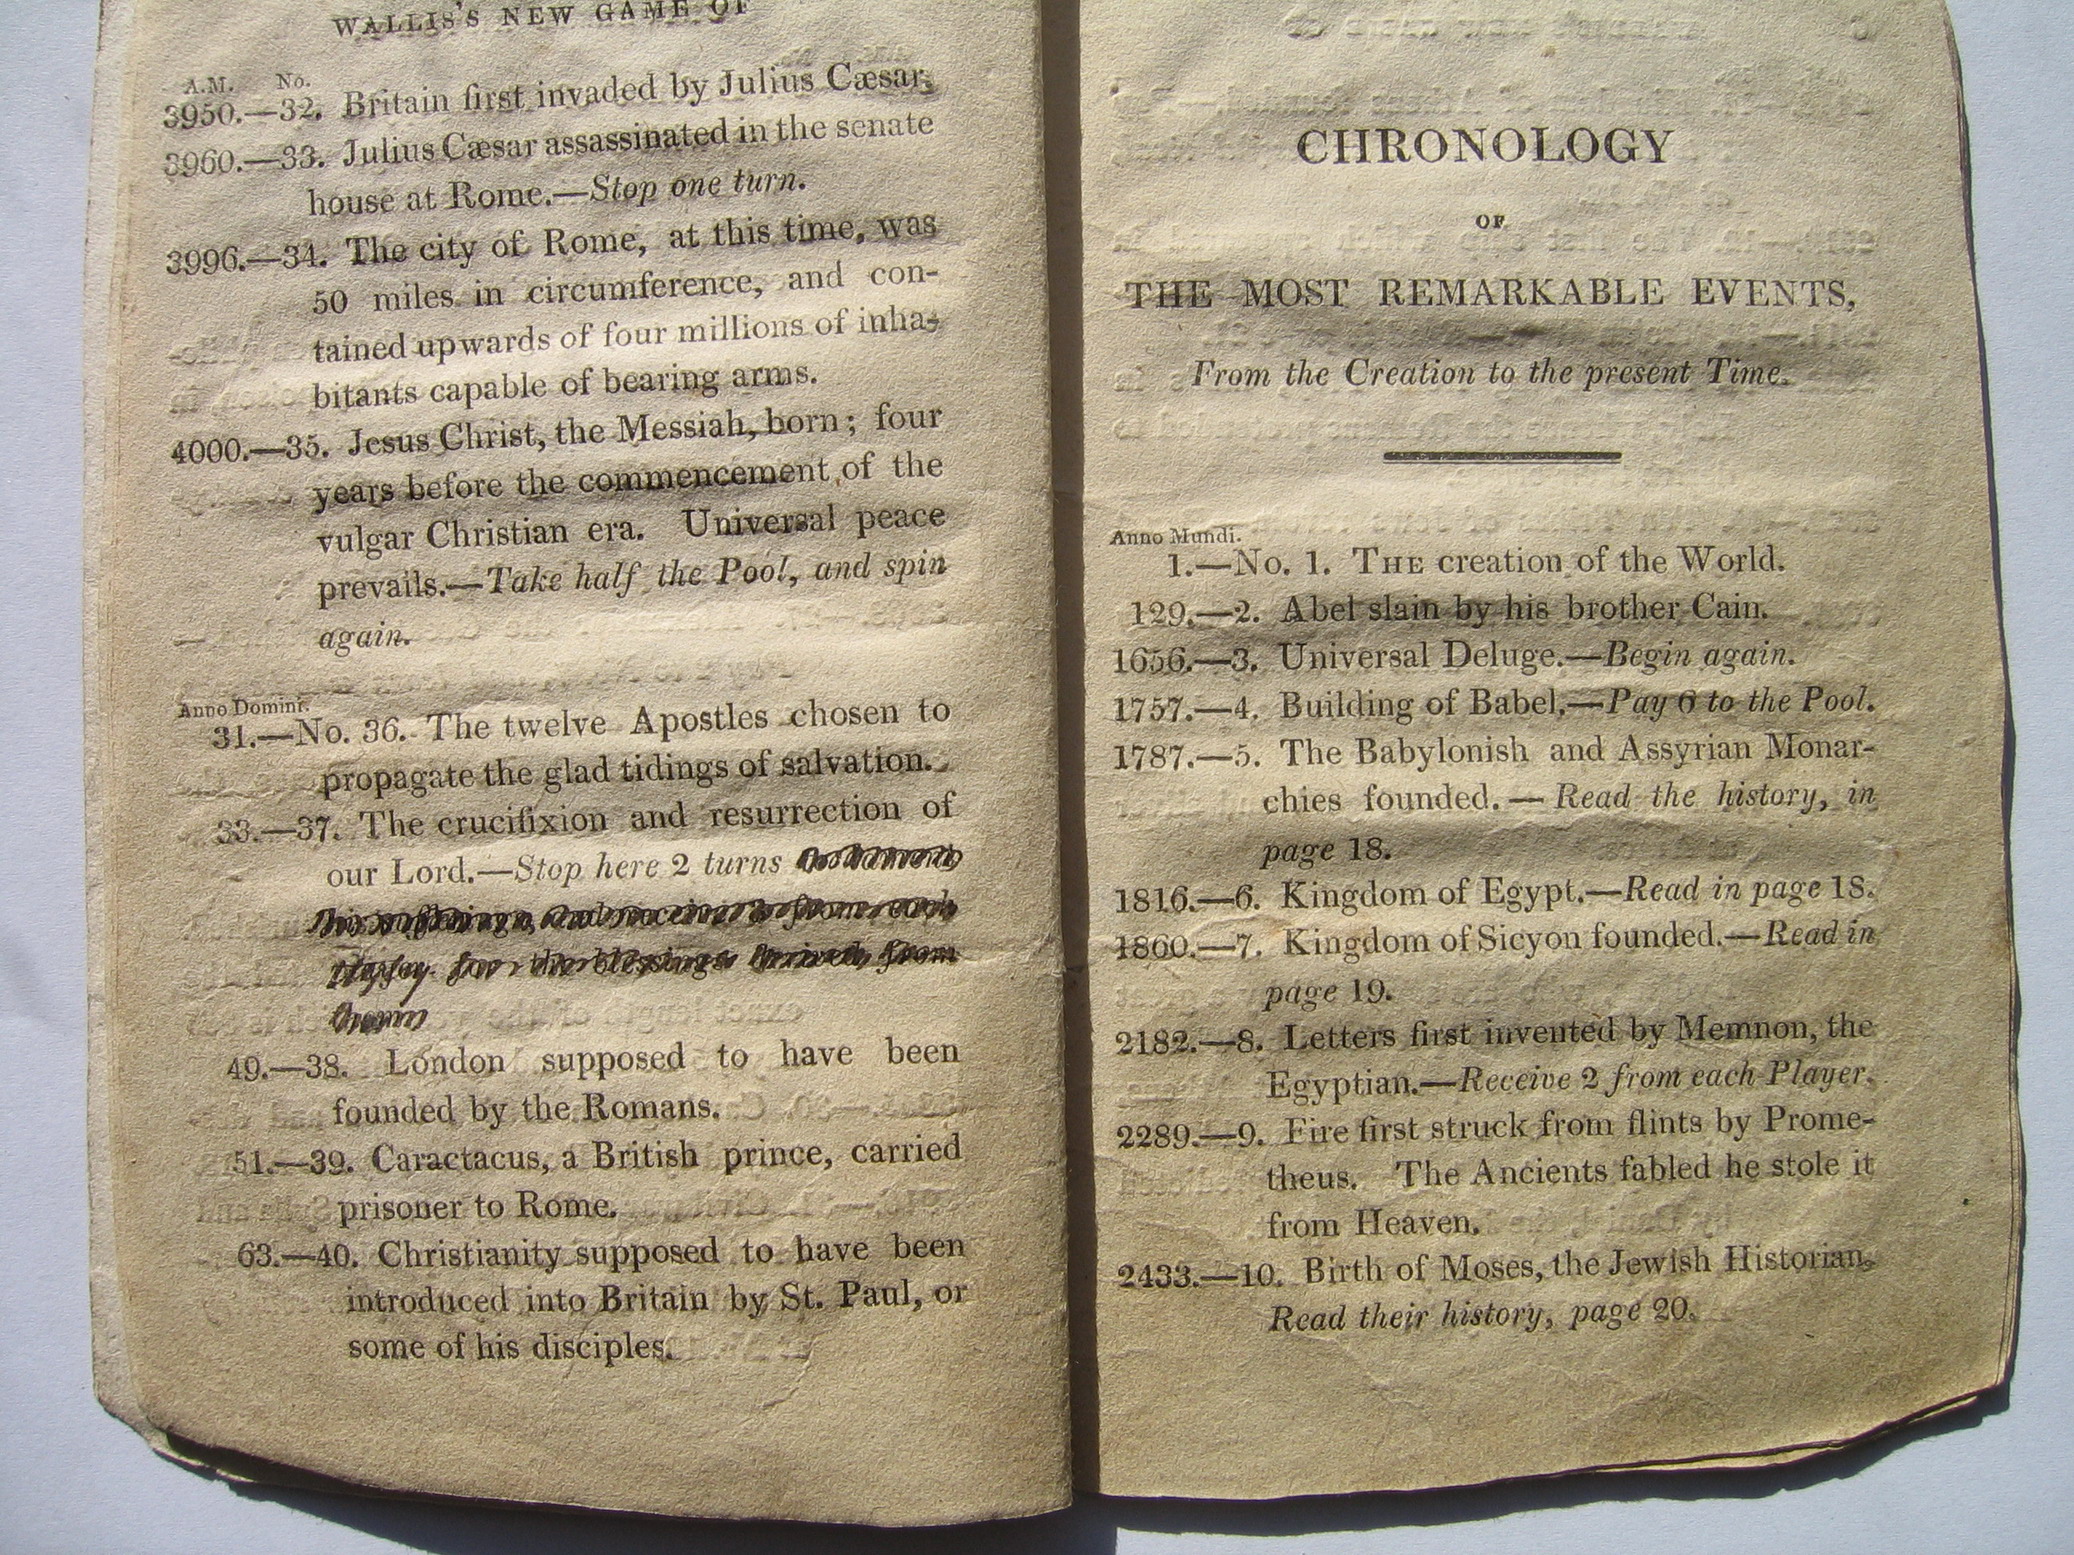 WALLIS'S NEW GAME OF
A.M. No.
3950.—32. Britain first invaded by Julius Cæsar.
3960.—33. Julius Cæsar assassinated in the senate
house at Rome.—Stop one turn.
3996.—34. The city of Rome, at this time, was
50 miles in circumference, and con-
tained upwards of four millions of inha-
bitants capable of bearing arms.
4000.—35. Jesus Christ, the Messiah, born; four
years before the commencement of the
vulgar Christian era. Universal peace
prevails.—Take half the Pool, and spin
again.
Anno Domini.
31.—No. 36. The twelve Apostles chosen to
propagate the glad tidings of salvation.
33.—37. The crucifixion and resurrection of
our Lord.—Stop here 2 turns
for the blessings from
49.—38. London supposed to have been
founded by the Romans.
51.—39. Caractacus, a British prince, carried
prisoner to Rome.
63.—40. Christianity supposed to have been
introduced into Britain by St. Paul, or
some of his disciples.
CHRONOLOGY
OF
THE MOST REMARKABLE EVENTS,
From the Creation to the present Time.
Anno Mundi.
1.—No. 1. THE creation of the World.
129.—2. Abel slain by his brother Cain.
1656.—3. Universal Deluge.—Begin again.
1757.—4. Building of Babel.—Pay 6 to the Pool.
1787.—5. The Babylonish and Assyrian Monar-
chies founded.—Read the history, in
page 18.
1816.—6. Kingdom of Egypt.—Read in page 18.
1860.—7. Kingdom of Sicyon founded.—Read in
page 19.
2182.—8. Letters first invented by Memnon, the
Egyptian.—Receive 2 from each Player.
2289.—9. Fire first struck from flints by Prome-
theus. The Ancients fabled he stole it
from Heaven.
2433.—10. Birth of Moses, the Jewish Historian.
Read their history, page 20.